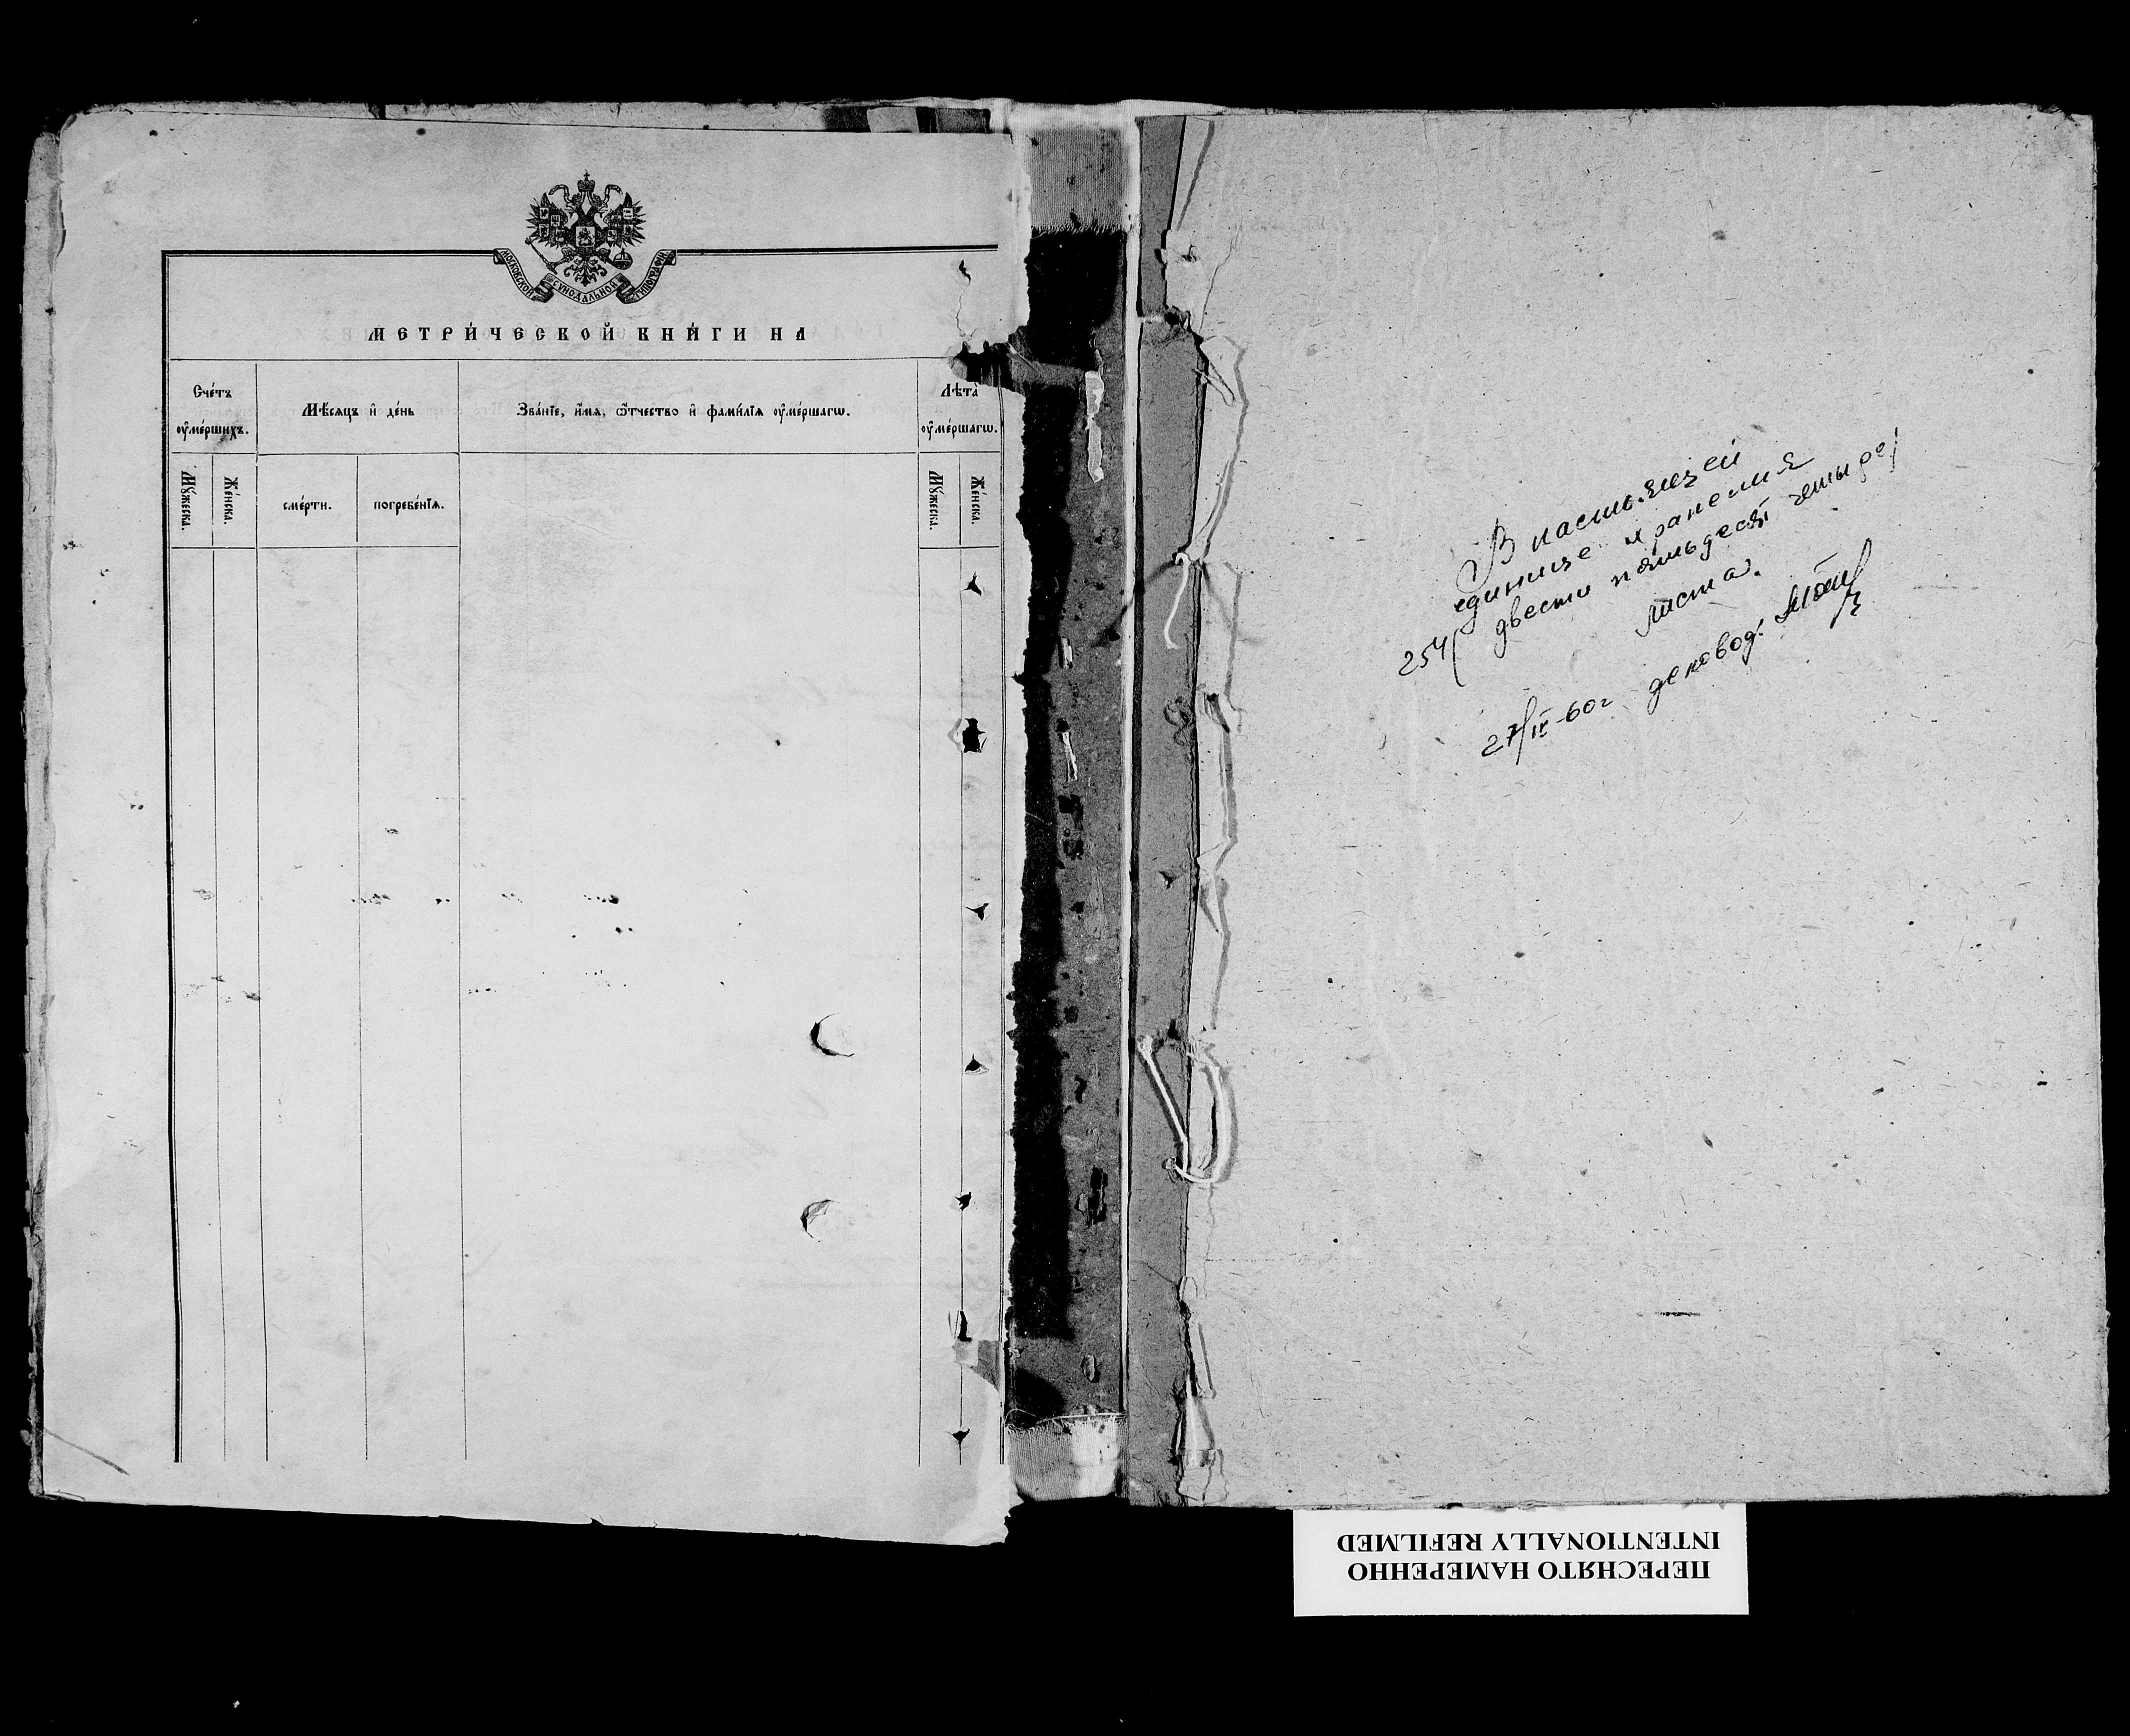 МОСКОВСКОЙ СУНОДАЛЬНОЙ ТИПОГРАФІИ
МЕТРИ́ЧЕСКОЙ КНИ́ГИ НА
Сче́тъ
оу҆ме́ршихъ.
Мѣ́сяцъ и҆ де́нь
Зва́нїе, и҆́мѧ, ѻ҆́тчество и҆ фами́лїѧ оу҆ме́ршагѡ.
Лѣта̀
оу҆ме́ршагѡ.
Мꙋ́жеска.
Же́нска.
сме́рти.
погребе́нїѧ.
Мꙋ́жеска.
Же́нска.
В настоящей
единице хранения
254 (двести пятьдесят четыре)
листа.
27/IX-60г деловод.
ПЕРЕСНЯТО НАМЕРЕННО
INTENTIONALLY REFILMED